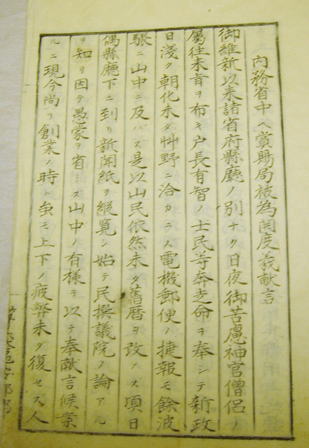 内務省中ヘ賞賜局被為開度義献言
御維新以来諸省府縣廳ノ別ナク日夜御苦慮神官僧侶ノ
属往本旨ヲ布キ戸長有智ノ士民等奔走命ヲ奉シテ新政
日浅ク朝化未タ艸野ニ洽カラス電機郵便ノ捷報モ餘波
張ニ山中ニ及バズ是以山民依然未タ舊暦ヲ改メス項日
偶縣廳下ニ到リ新聞紙ヲ縦覧シ始テ民撰議院ノ論アル
ヲ知リ因テ愚蒙ヲ省ミス山中ノ有様ヲ以テ奉献言候業
ルニ現今尚ヲ創業ノ時ト虽モ上下ノ疲弊未タ復セス人